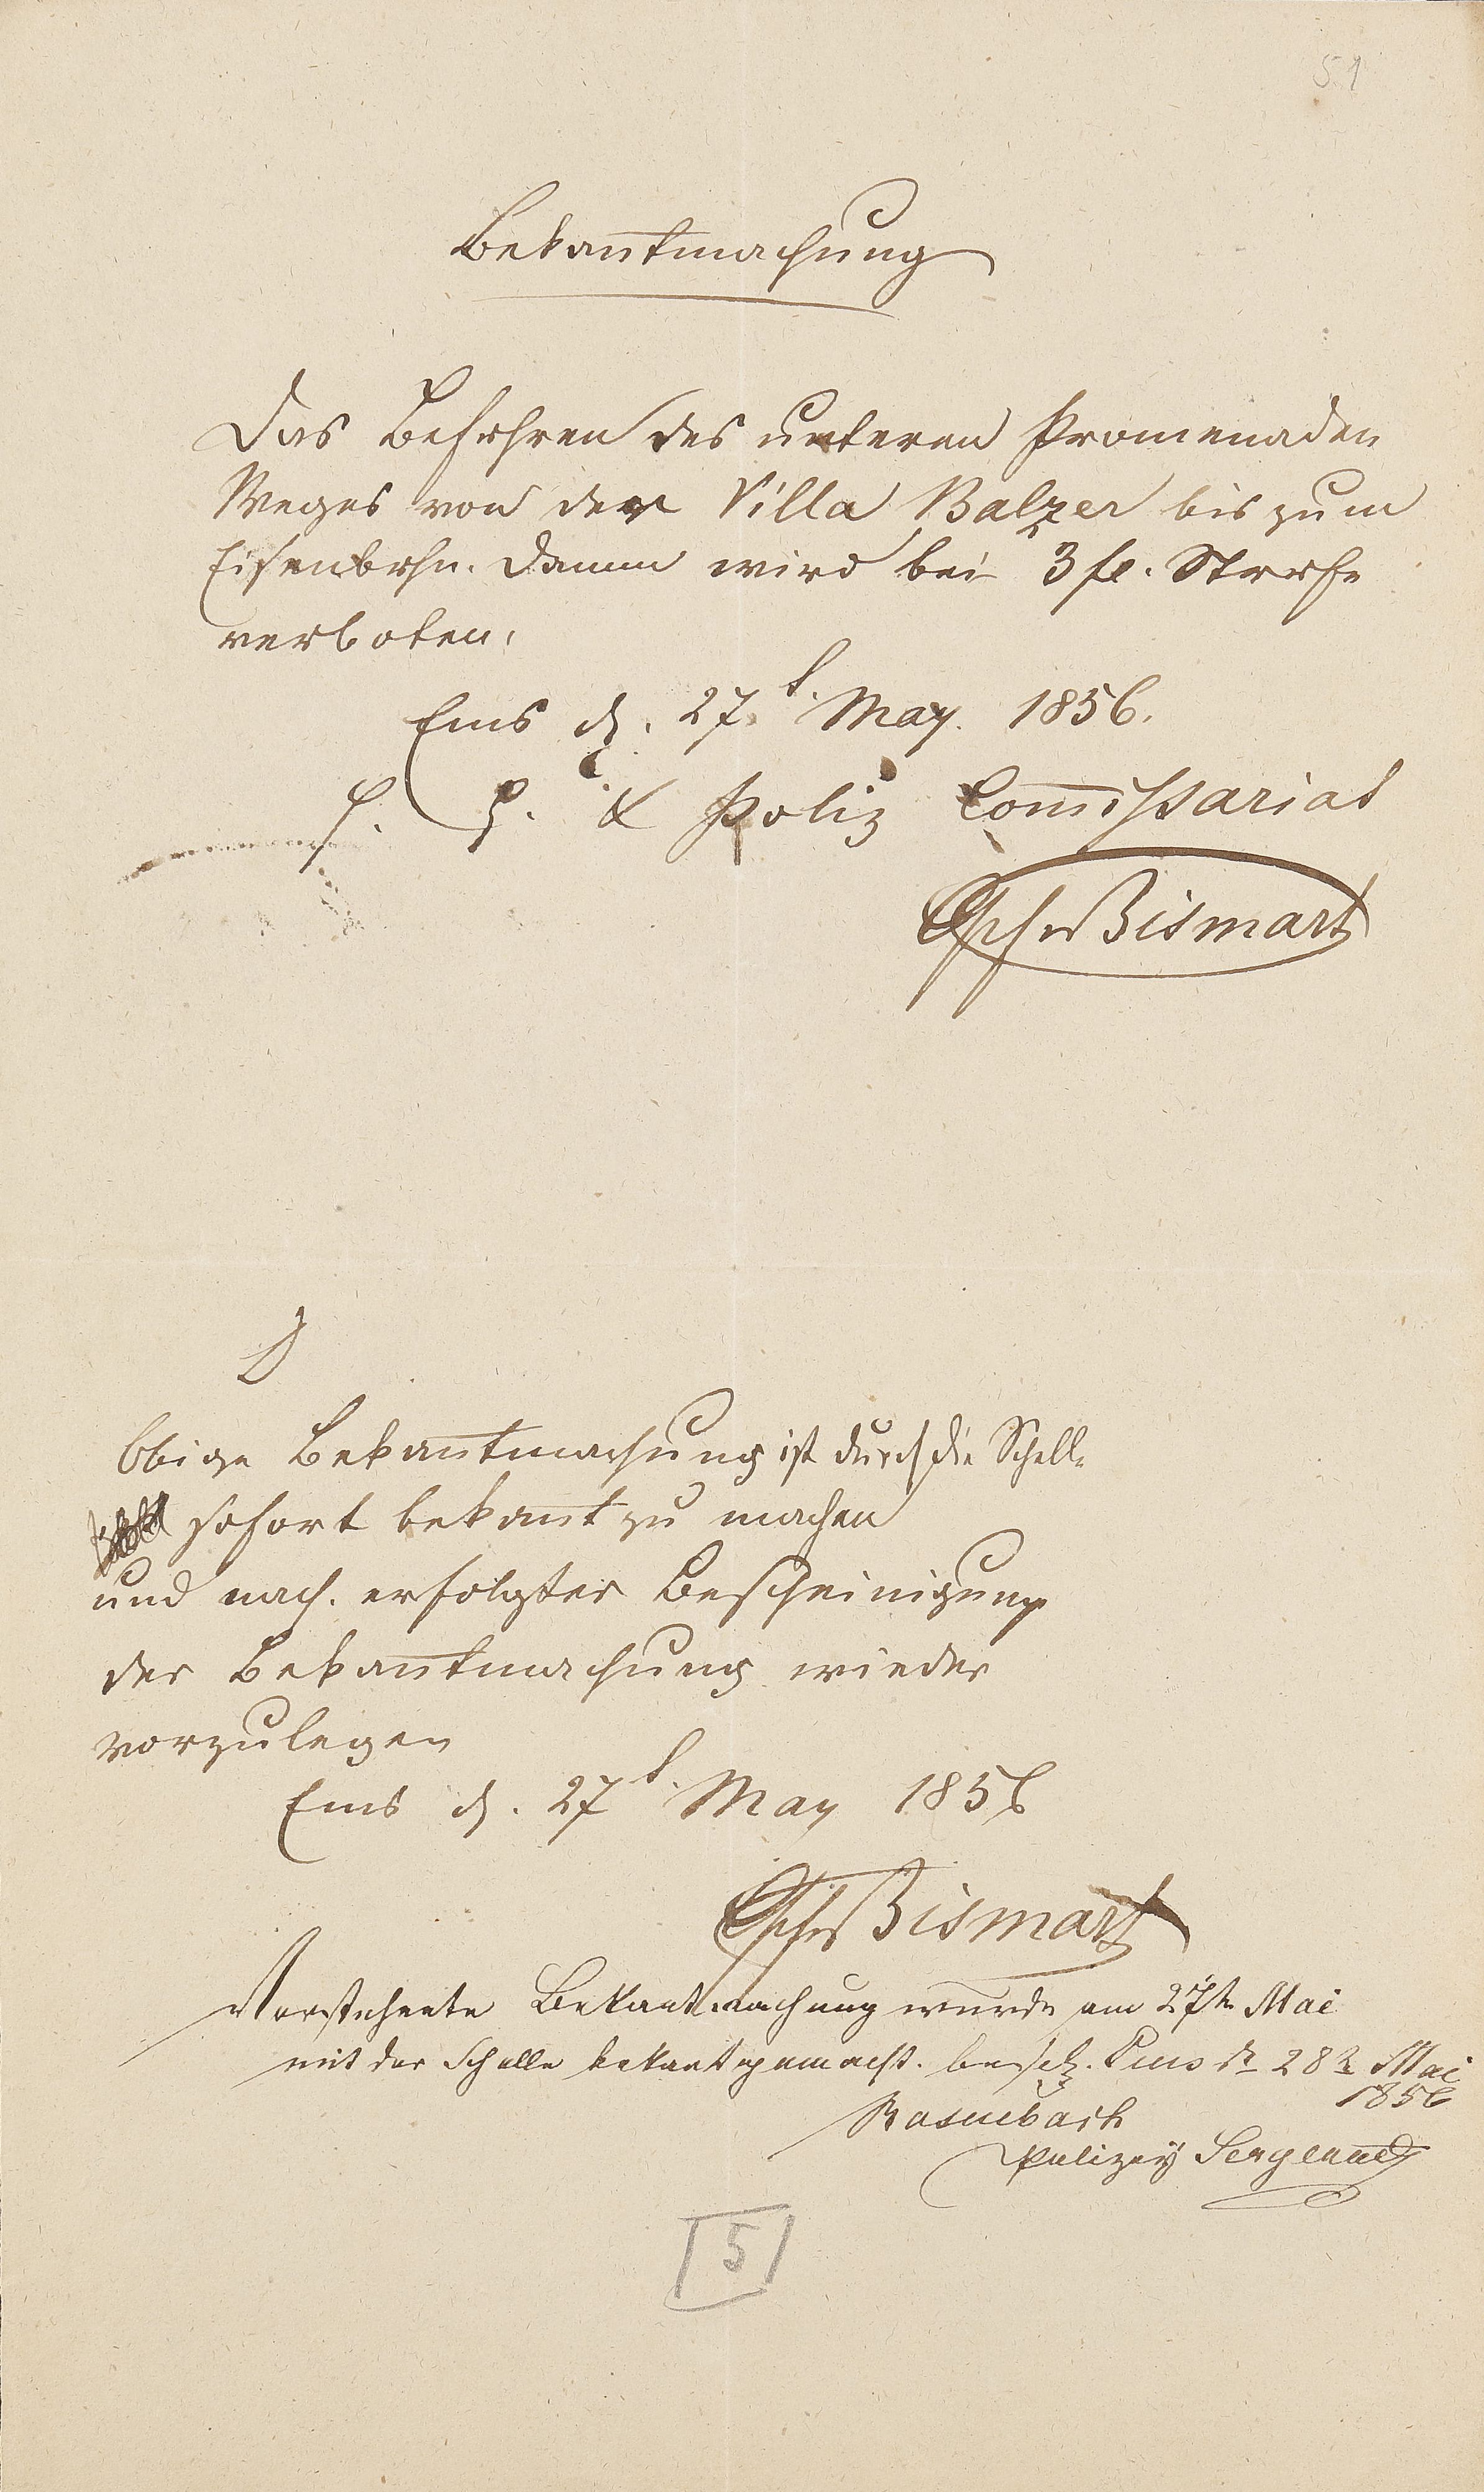 51
Bekanntmachung
Das Befahren des unteren Promenaden
Weges von der Villa Balzer bis zum
Eisenbahn. Damm wird bei 3 fl. Strafe
verboten.
Ems d. 27t. May. 1856.
H. P. & Poliz Commissariat
Bismark
Obige Bekanntmachung ist durch die Schelle
sofort bekannt zu machen
und nach. erfolgter Bescheinigung
der Bekanntmachung wieder
vorzulegen
Ems d. 27t. May 1856
Bismark
Vorstehente Bekantmachung wurde am 27tn Mai
mit der Schelle bekant gemacht. besch. Ems dn 28n Mai
1856
Rasenbach
Polizey Sergeant
5